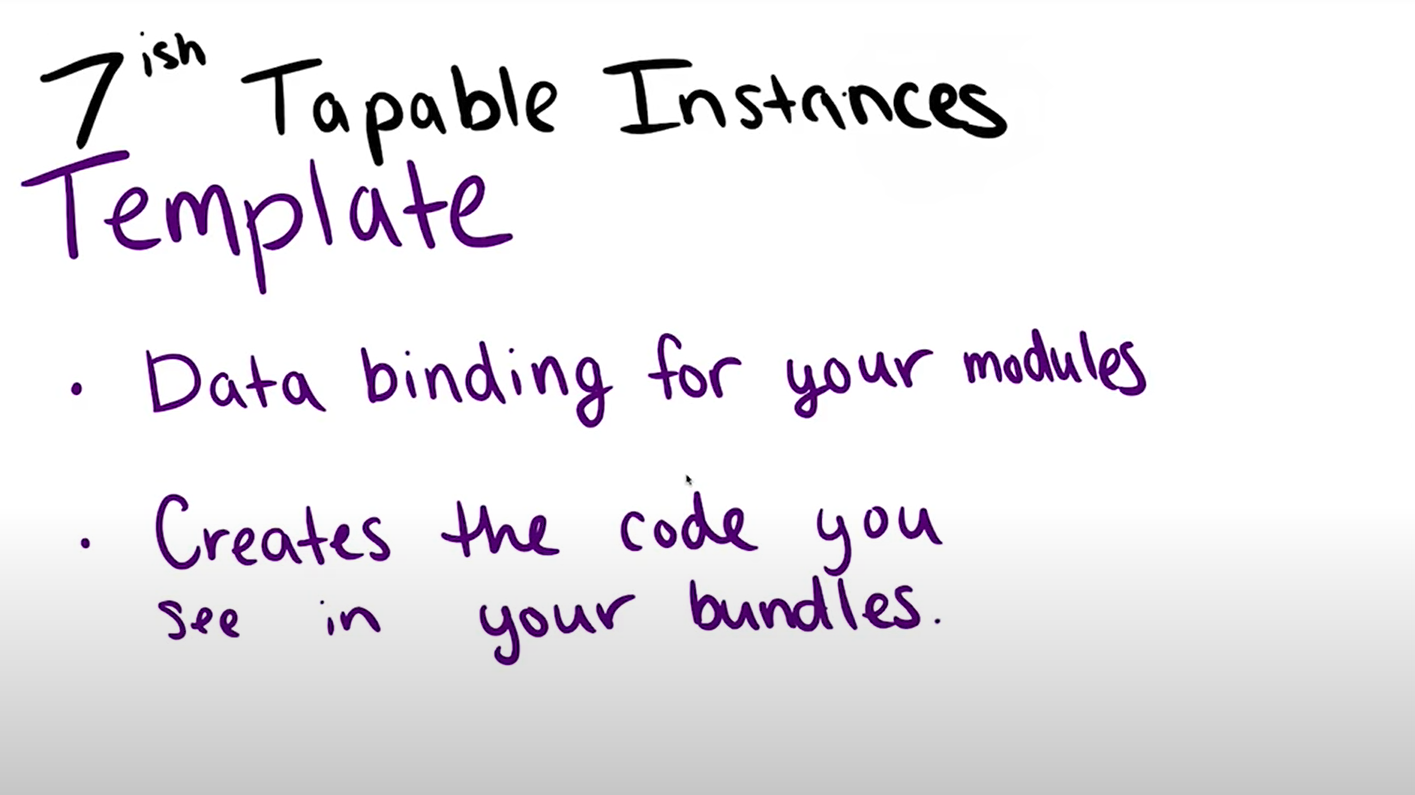 7ish Tapable Instances
Template
• Data binding for your modules
• Creates the code you
see in your bundles.